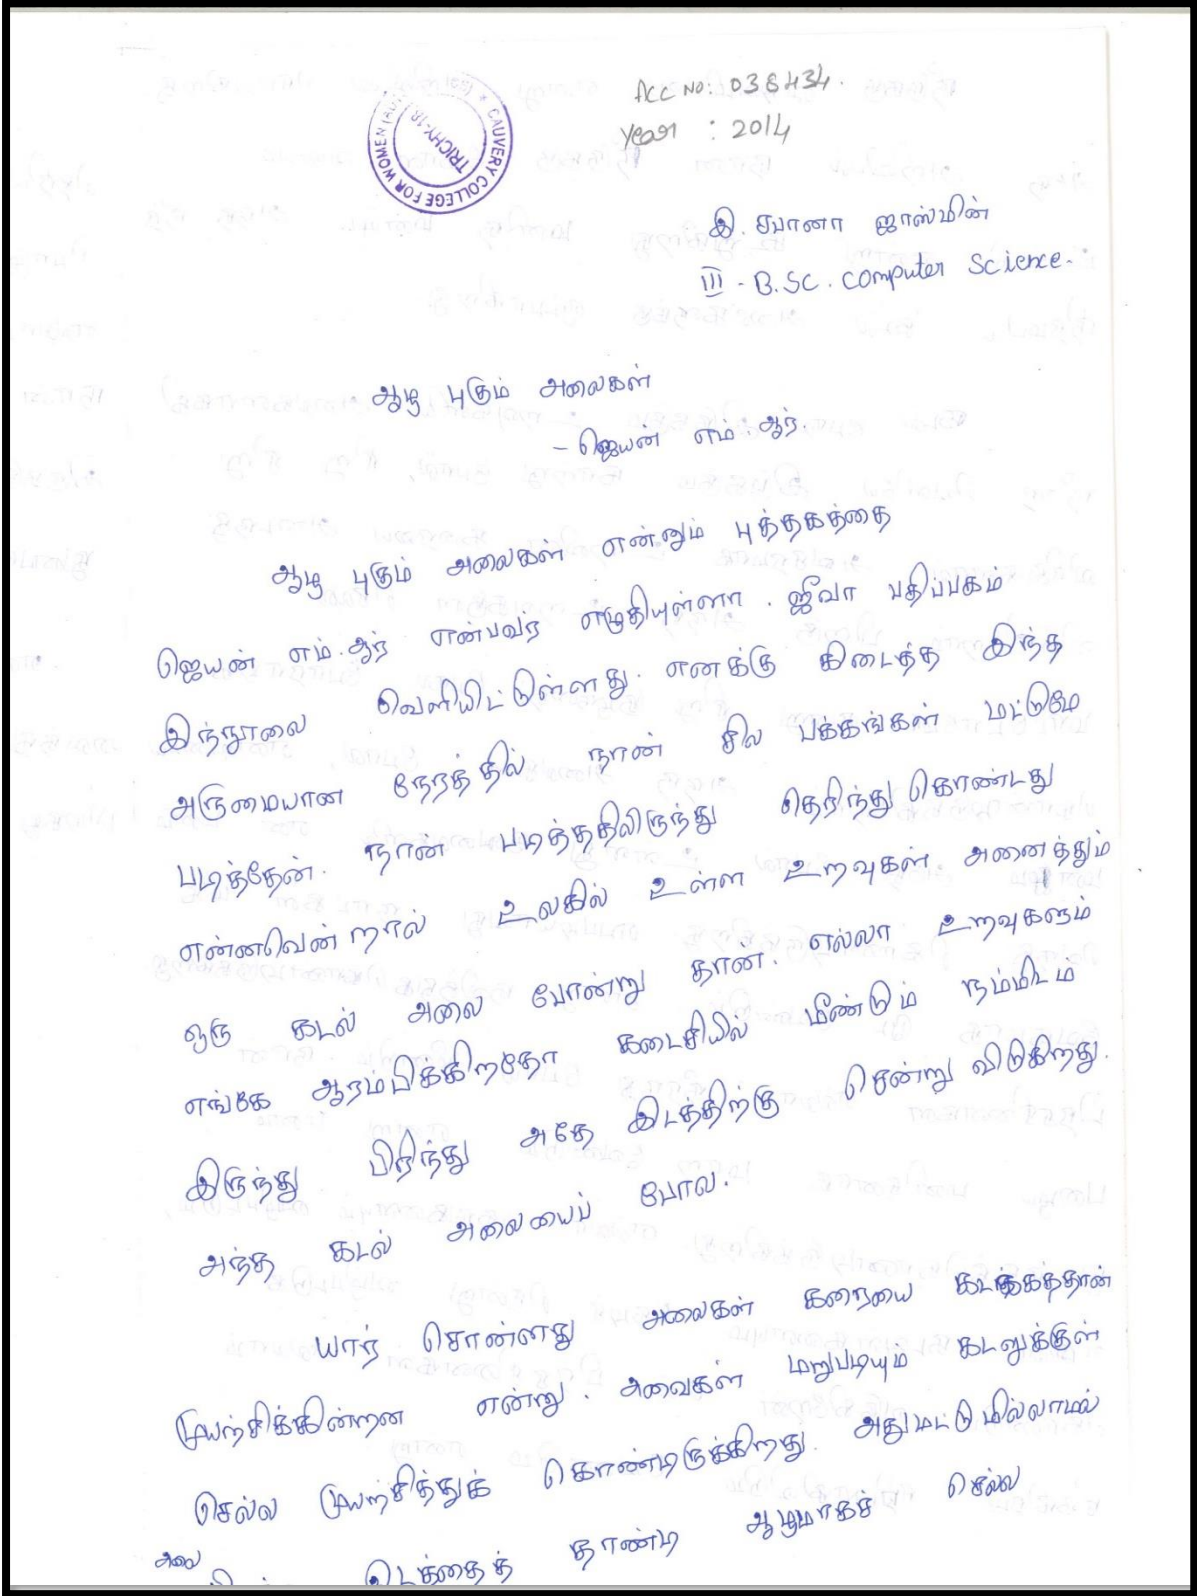 ACC NO: 038434
Year : 2014
CAUVERY COLLEGE FOR WOMEN
TRICHY-18
இ. சபானா ஜாஸ்மின்
III - B.SC. Computer Science.
ஆழி புகும் அலைகள்
- ஜெயன் எம்.ஆர்.
ஆழி புகும் அலைகள் என்னும் புத்தகத்தை
ஜெயன் எம்.ஆர் என்பவர எழுதியுள்ளா. ஜீவா பதிப்பகம்
இந்நூலை வெளியிட்டுள்ளது. எனக்கு கிடைத்த இந்த
அருமையான நேரத்தில் நான் சில பக்கங்கள் மட்டுமே
படித்தேன். நான் படித்ததிலிருந்து தெரிந்து கொண்டது
என்னவென்றால் உலகில் உள்ள உறவுகள் அனைத்தும்
ஒரு கடல் அலை போன்று தான். எல்லா உறவுகளும்
எங்கே ஆரம்பிக்கிறதோ கடைசியில் மீண்டும் நம்மிடம்
இருந்து பிரிந்து அதே இடத்திற்கு சென்று விடுகிறது.
அந்த கடல் அலையைப் போல.
யார் சொன்னது அலைகள் கரையை கடக்கத்தான்
முயற்சிக்கின்றன என்று. அவைகள் மறுபடியும் கடலுக்குள்
செல்ல முயற்சித்துக் கொண்டிருக்கிறது. அதுமட்டுமில்லாமல்
அலை தாண்டி ஆழமாகச் செல்ல